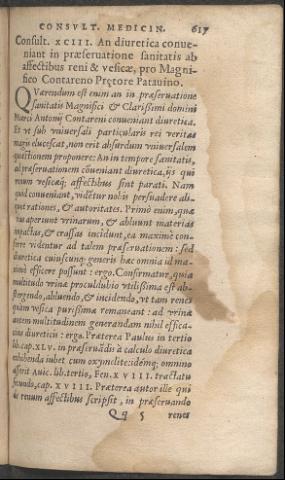 CONSVLT. MEDICIN. 617
Consult. XCIII. An diuretica conue-
niant in præseruatione sanitatis ab
affectibus reni & vesicæ, pro Magni-
fico Contareno Prętore Patauino.
QVærendum est enim an in præseruatione
sanitatis Magnifici & Clarissimi domini
Marci Antonij Contareni conueniant diuretica.
Et vt sub vniuersali particularis rei veritas
magis elucescat, non erit absurdum vniuersalem
quæstionem proponere: An in tempore sanitatis,
ad præseruationem cōueniant diuretica, ijs qui
renum vesicæq; affectibus sint parati. Nam
quod conueniant, vidētur nobis persuadere ali-
quæ rationes, & autoritates. Primò enim, quæ
vias aperiunt vrinarum, & abluunt materias
impactas, & crassas incidunt, ea maximè con-
ferre videntur ad talem præseruationem: sed
diuretica cuiuscunq; generis hæc omnia id ma-
ximè efficere possunt: ergo. Confirmatur, quia
multitudo vrinæ proculdubio vtilissima est ab-
stergendo, abluendo, & incidendo, vt tam renes
quàm vesica purissima remaneant: ad vrinæ
autem multitudinem generandam nihil effica-
cius diureticis: ergo. Præterea Paulus in tertio
lib. cap. XLV. in præseruādis à calculo diuretica
exhibenda iubet cum oxymelite: idémq; omnino
asserit Auic. lib. tertio, Fen. XVIII. tractatu
secundo, cap. XVIII. Præterea autor ille qui
de renum affectibus scripsit, in præseruando
Qq 5 renes